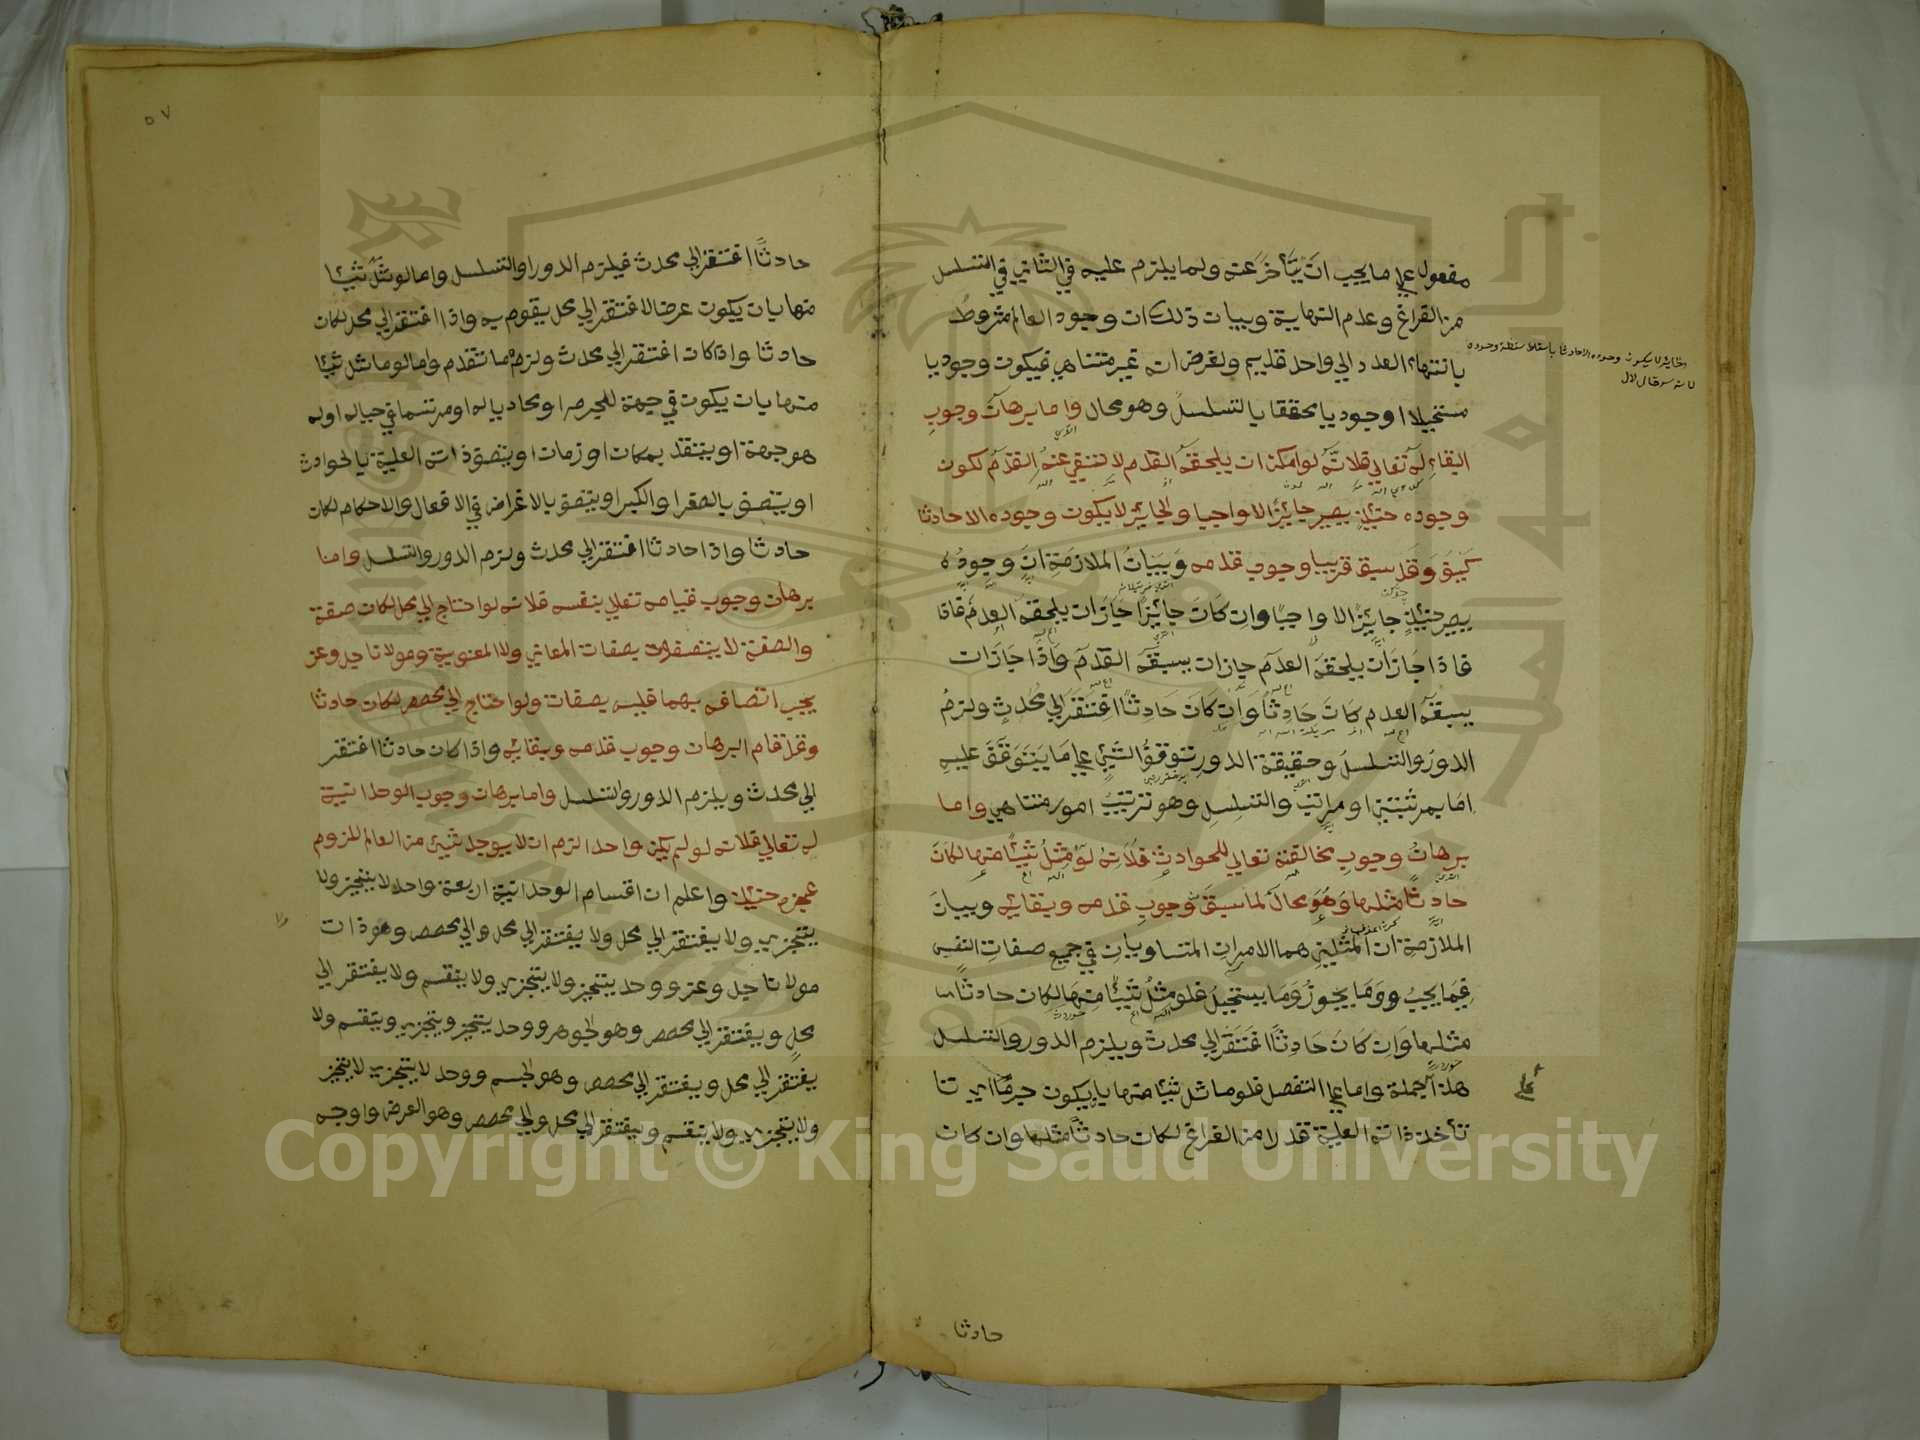 مفعول علي ما يجب ان يتأخر عنه ولما يلزم عليه في الثاني في التسلسل
من الفراغ وعدم النهاية وبيان ذلك ان وجود العالم مشروط
بانتهاء العدد الي واحد قديم ولغرض انه غير متناهي فيكون وجوديا
مستحيلا او وجوديا محققا بالتسلسل وهو محال واما برهان وجوب
البقاء له تعالي فلانه لو امكن ان يلحقه العدم لانتفي عنه القدم لكون
وجوده حينئذ يصير جايزا لا واجبا والجايز لا يكون وجوده الا حادثا
كيف وقد سبق قريبا وجوب قدمه وبيان الملازمة ان وجوده
يصير حينئذ جايزا لا واجبا وان كان جايزا جاز ان يلحقه العدم
فاذا جاز ان يلحقه العدم جاز ان يسبقه العدم واذا جاز ان
يسبقه العدم كان حادثا وان كان حادثا افتقر الي محدث ولزم
الدور والتسلسل وحقيقة الدور توقف الشيء علي ما يتوقف عليه
اما بمرتبتين او مراتب والتسلسل وهو ترتيب امور متناهي واما
برهان وجوب مخالفته تعالي للحوادث فلانه لو مثل شيئا منها لكان
حادثا مثلها وهو محال لما سبق وجوب قدمه وبقائه وبيان
الملازمة ان المثلين هما الامران المتساويان في جميع صفات النفس
فيما يجب وما يجوز وما يستحيل فلو مثل شيئا منها لكان حادثا
مثلها وان كان حادثا افتقر الي محدث ويلزم الدور والتسلسل
هذا الجملة واما علي التفصل فلو ماثل شيئا منها بان يكون جرما اي
تأخذ ذاته العلية قدرا من الفراغ لكان حادثا مثلها وان كان
حادثا
حادثا افتقر الي محدث فيلزم الدور او التسلسل واما لو مثل شيئا
منها بان يكون عرضا لافتقر الي محل يقوم به واذا افتقر الي محل لكان
حادثا واذا كان افتقر الي محدث ولزم ما تقدم واما لو ماثل شيئا
منها بان يكون في جهة للجرم او محاذيا له او مرتسما في خياله او له
هو جهة او يتقيد بمكان او زمان او يتصف ذاته العلية بالحوادث
او يتصف بالصغر او الكبر او يتصف بالاغراض في الافعال والاحكام لكان
حادثا واذا حادثا افتقر الي محدث ولزم الدور والتسلسل واما
برهان وجوب قيامه تعالي بنفسه فلانه لو احتاج الي محل لكان صفة
والصفة لا يتصف بصفات المعاني ولا المعنوية ومولانا جل وعز
يجب اتصافه بهما فليس بصفات ولو احتاج الي مخصص لكان حادثا
وقد قام البرهان وجوب قدمه وبقايه واذا كان حادثا افتقر
الي محدث ويلزم الدور والتسلسل واما برهان وجوب الوحدانية
له تعالي فلانه لو لم يكن واحدا لزم ان لا يوجد شيئ من العالم للزوم
عجزه حينئذ واعلم ان اقسام الوحدانية اربعة واحد لا يتحيز ولا
يتجزي ولا يفتقر الي محل ولا يفتقر الي محل والي مخصص وهو ذات
مولانا جل وعز ووحد يتحيز ولا يتجزي ولا ينقسم ولا يفتقر الي
محل ويفتقر الي مخصص وهو الجوهر ووحد يتحيز ويتجزي وينقسم ولا
يفتقر الي محل ويفتقر الي مخصص وهو الجسم ووحد لا يتجزي لا يتحيز
ولا يتجزي ولا ينقسم ويفتقر الي محل والي مخصص وهو العرض واوجه
٥٧
Copyright © King Saud University